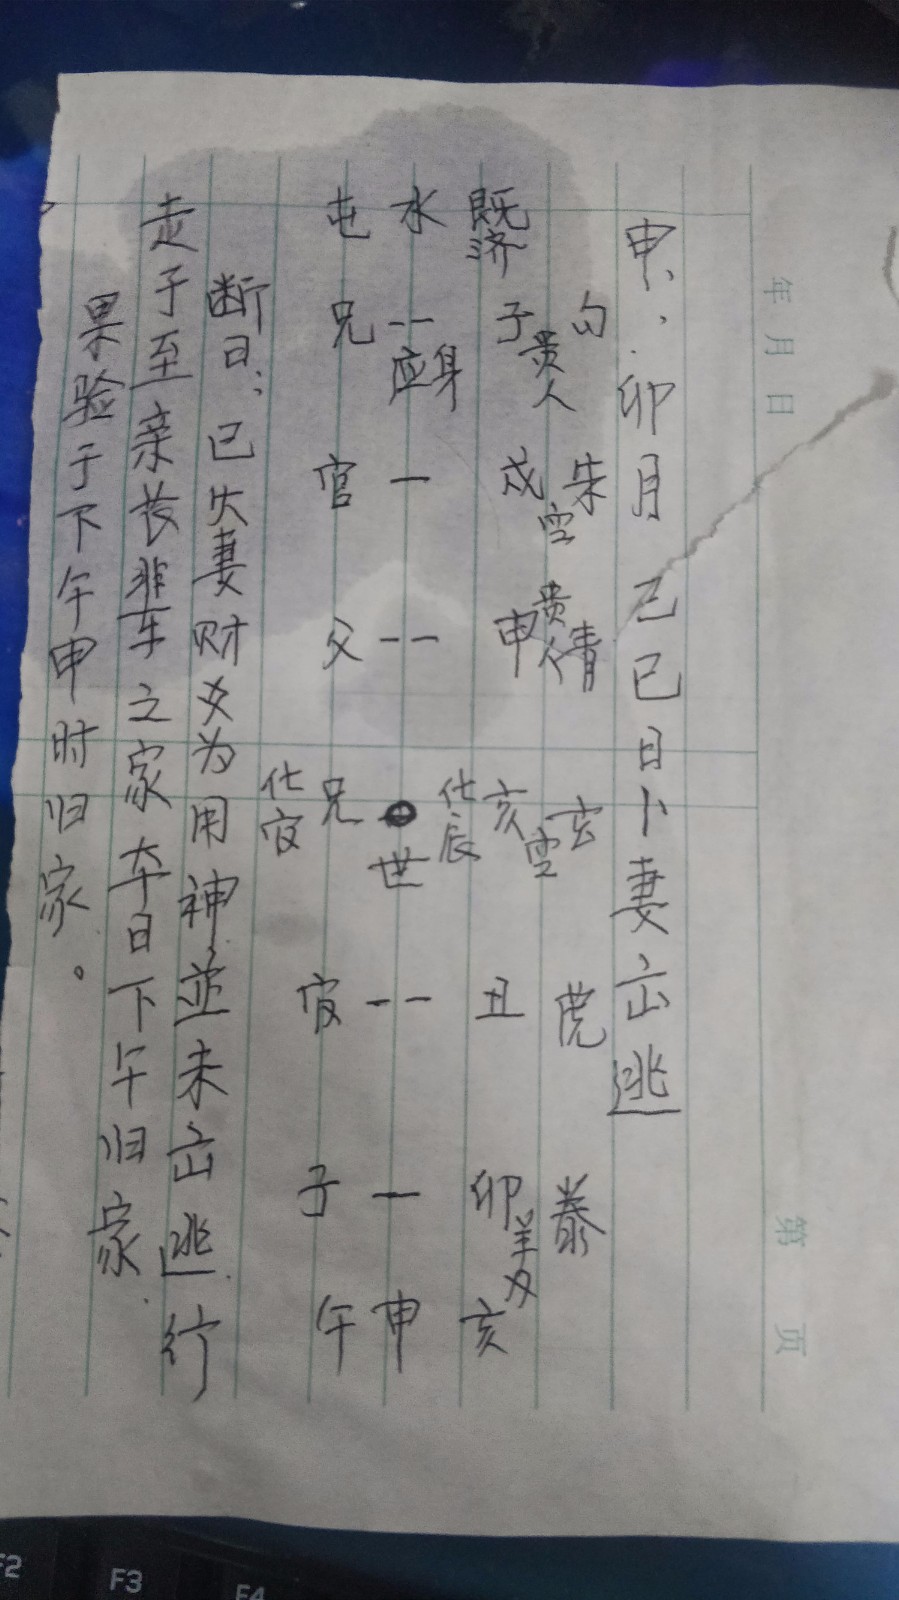 年月日
第 页
申、、卯月己巳日卜妻出逃
勾 朱 青 玄 虎
既济 子贵人 戌空 申贵人 亥空 化辰 丑 卯羊刃 亥
水 -- 应身 — -- 世 -- — 申
屯 兄 官 父 兄 化官 官 子 午
断曰:巳火妻财爻为用神並未出逃行
走于至亲长辈之家本日下午归家.
果验于下午申时归家。
F2
F3
F4